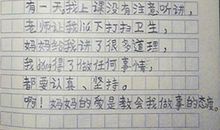 有一天我上课没有注意听讲，
老师让我留下打扫卫生，
妈妈给我讲了很多道理，
我懂得了做任何事情，
都要认真、坚持。
啊！妈妈的爱是教会我做事的态度。